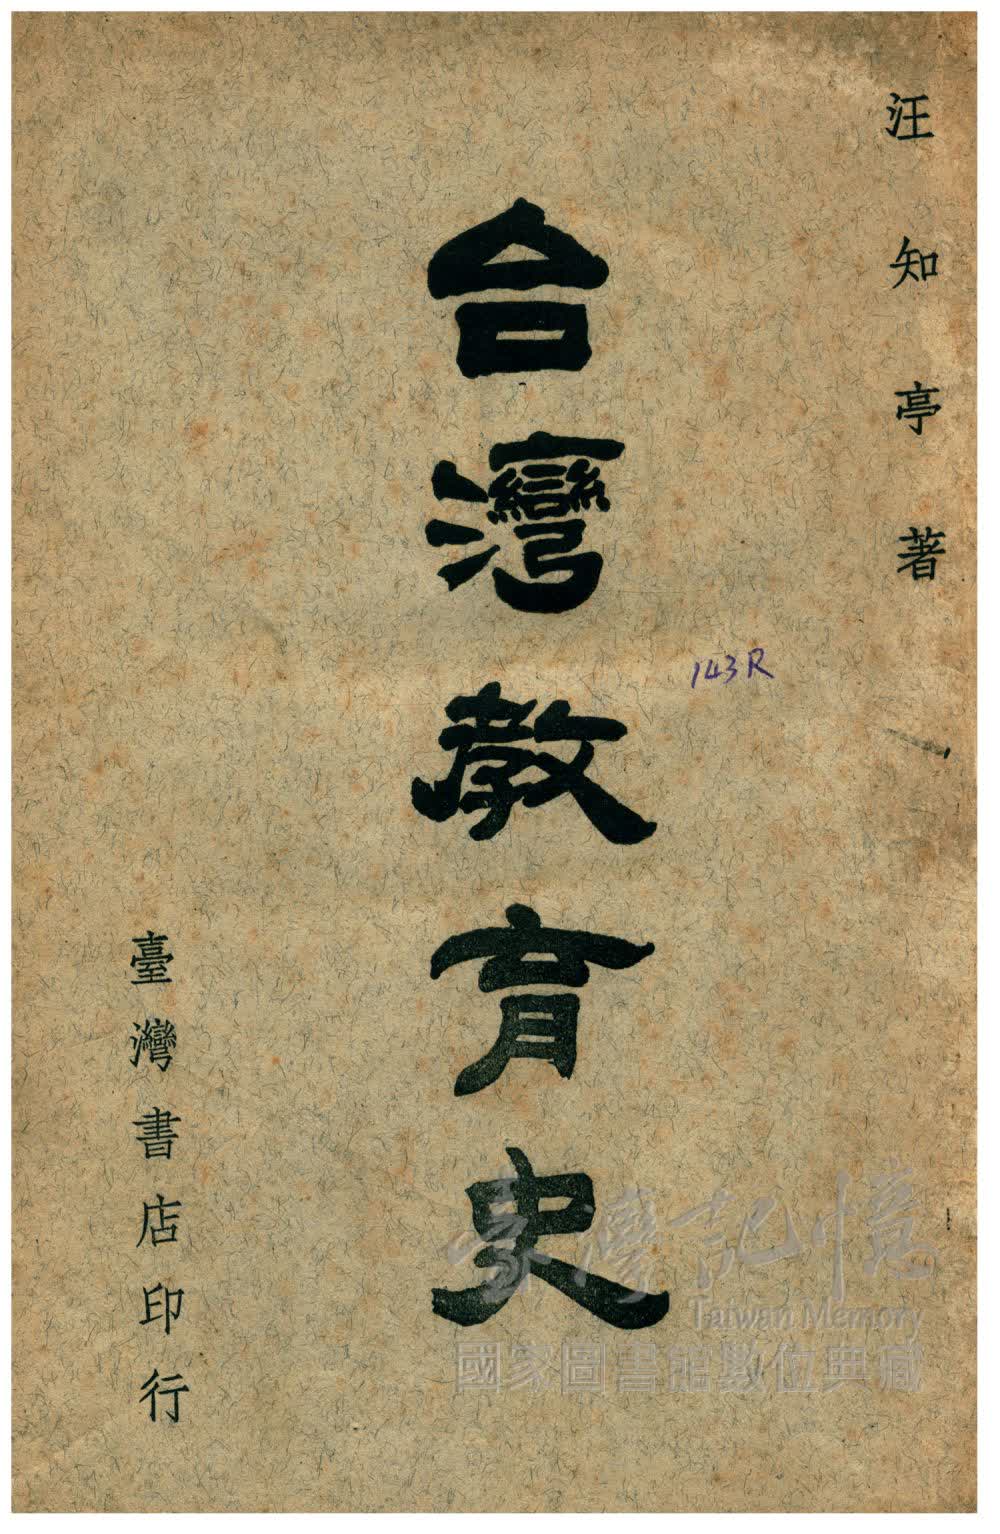 汪知亭著
台灣教育史
143R
臺灣書店印行
臺灣記憶
Taiwan Memory
國家圖書館數位典藏